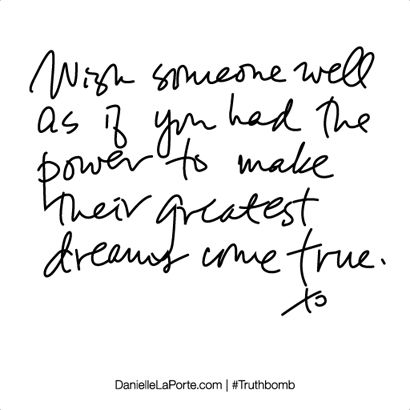 Wish someone well
as if you had the
power to make
their greatest
dreams come true.
xo
DanielleLaPorte.com | #Truthbomb